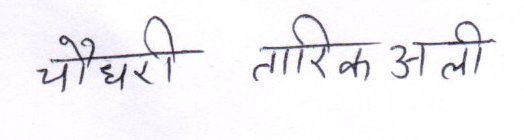 चौधरी तारिक अली